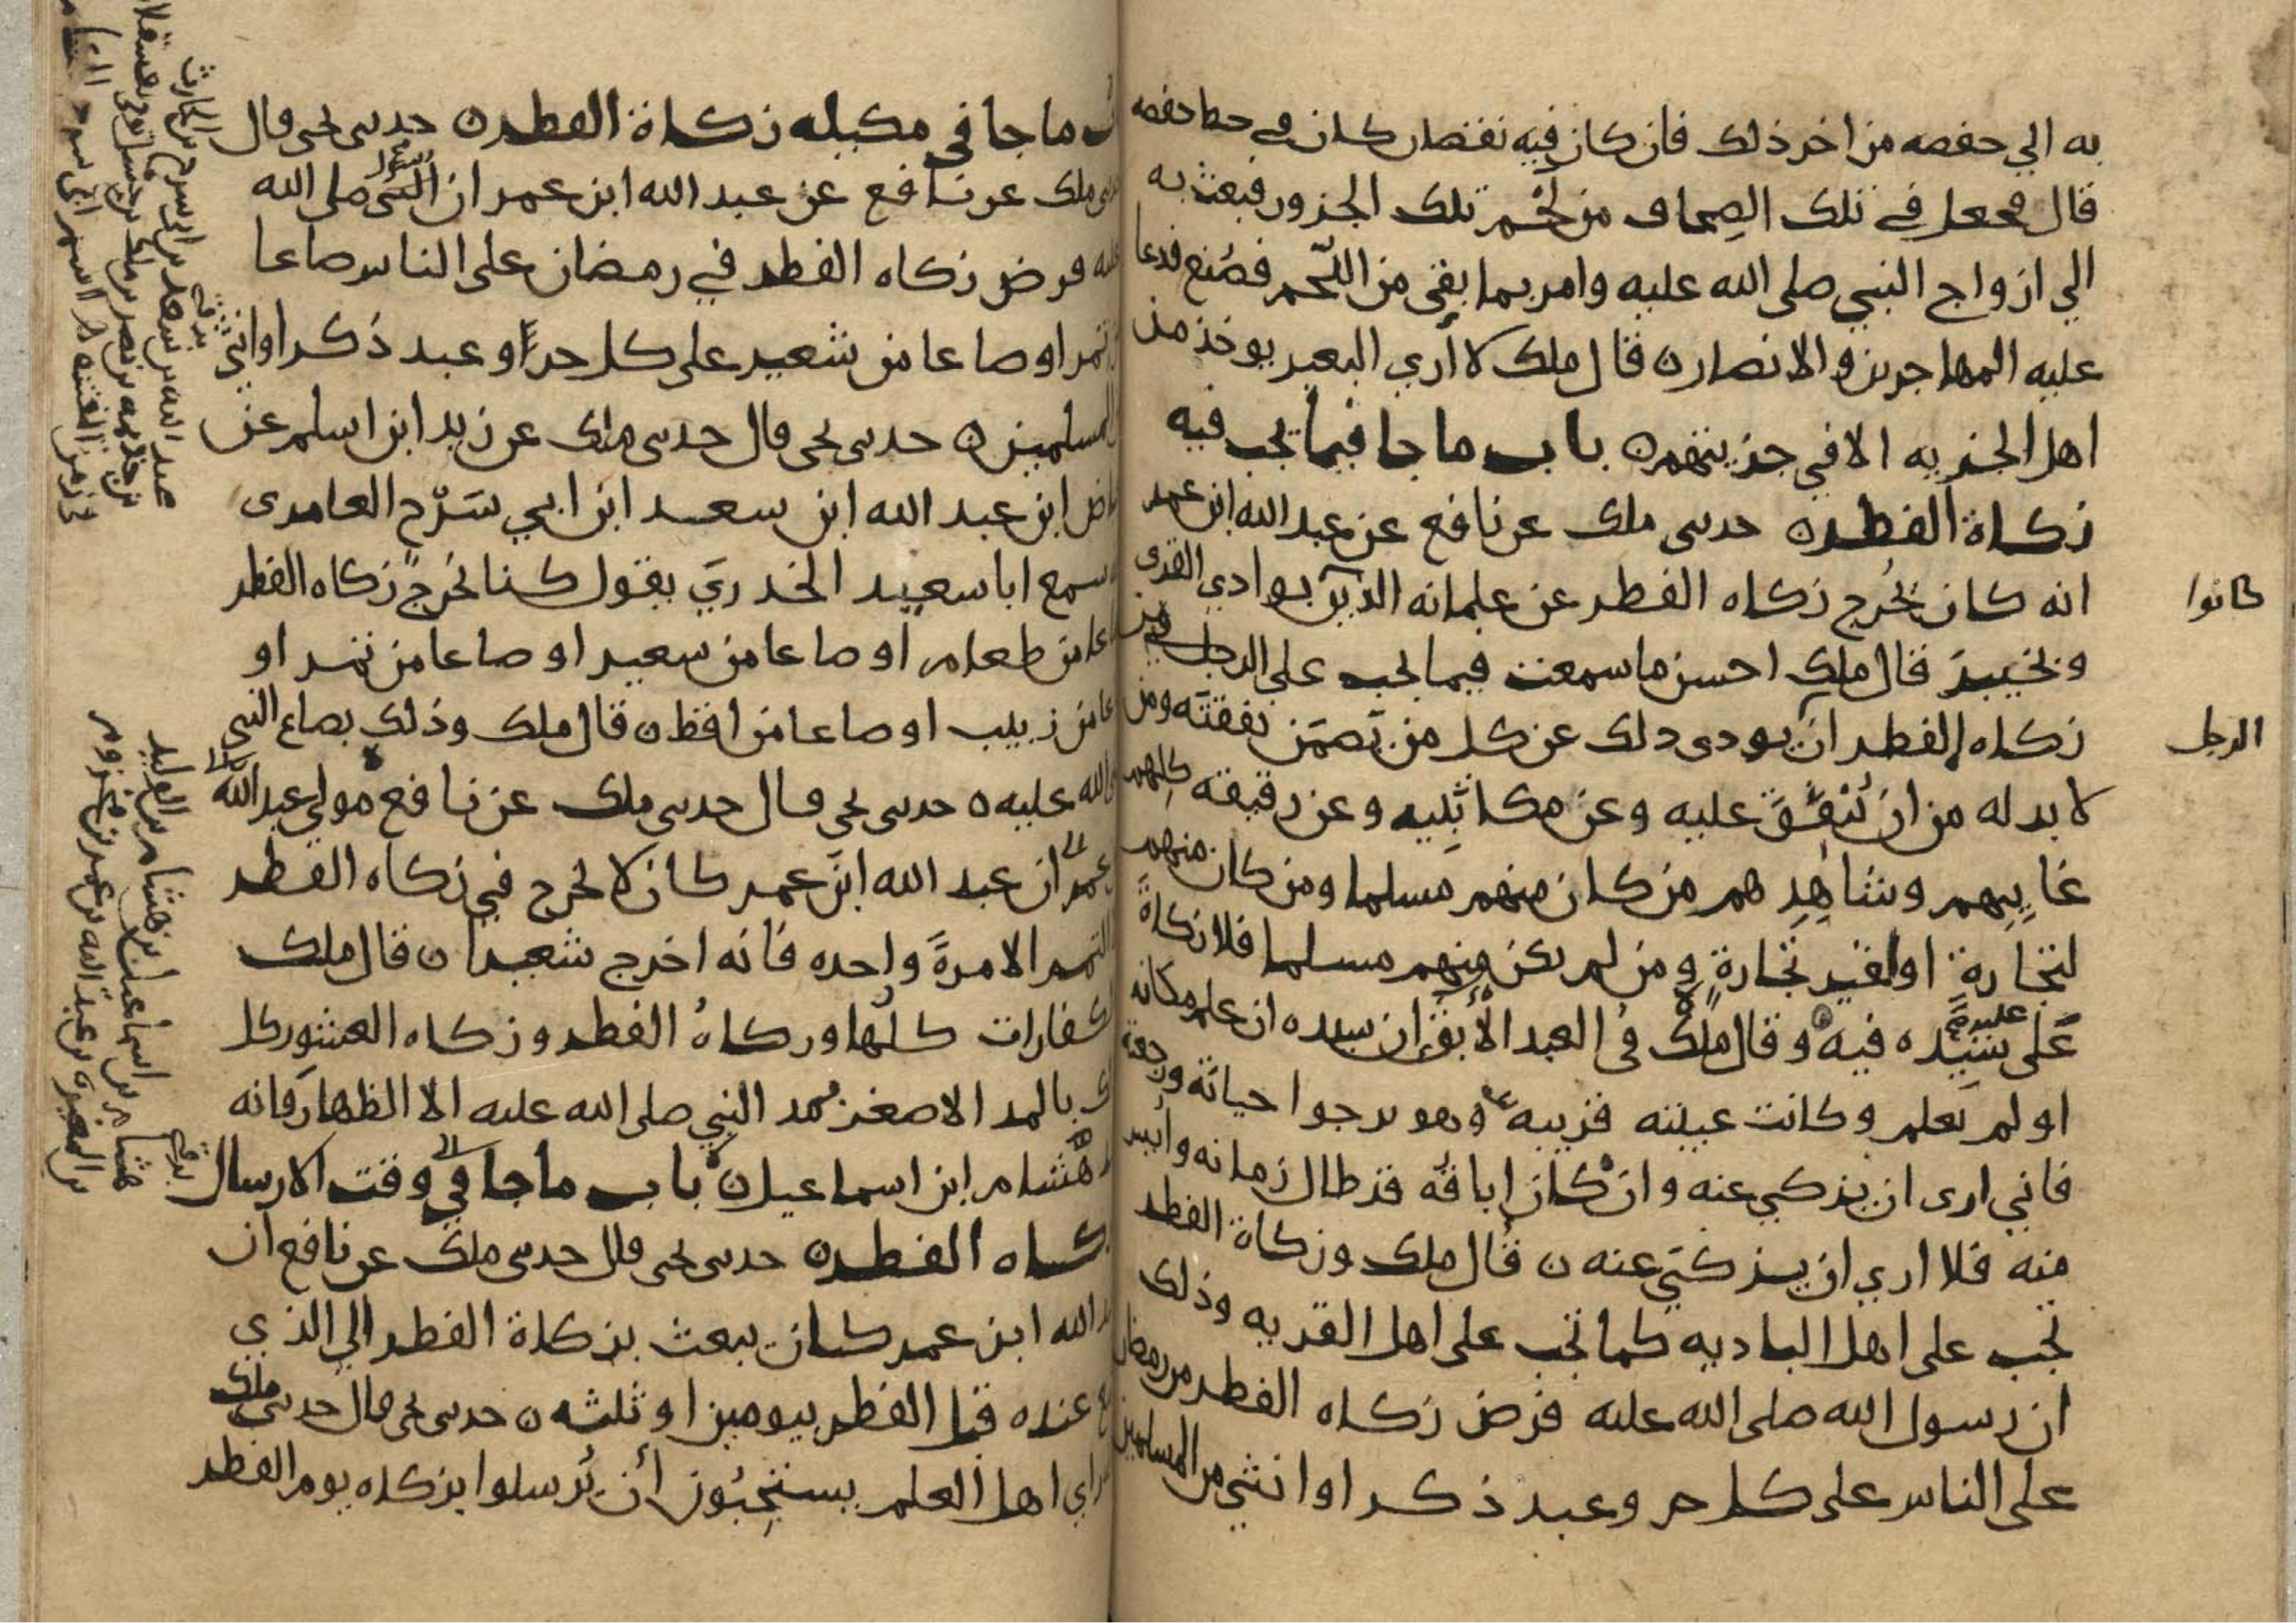 به الي حفصه من اخر ذلك فان كان فيه نقصان كان في حط حفصه
قال فجعل في تلك الصحاف من لحم تلك الجزور فبعث به
الي ازواج النبي صلى الله عليه وامر بما بقي من اللّحم فصُنع فدعا
عليه المهاجرين والانصار ن قال ملك لا أري البعير يوخذ من
اهل الجزيه الا في جزيتهم ن باب ما جا فيما تجب فيه
زكاة الفطر ن حدسى ملك عن نافع عن عبد الله ابن عمر
انه كان يخُرج زكاه الفطر عن غلمانه الذين بوادي القرى
كانوا
وبخيبر قال ملك احسن ما سمعت فيما يجب على الرجل من
زكاه الفطر ان يودى دلك عن كل من تَضمَن نفقتَه ومن
الرجل
لا بد له من ان يُنفِقَ عليه وعن مكاتَبِيه وعن رقيقه كلِهم
غايبِهم وشاهِدِهم من كان منهم مسلما ومن كان منهم
لتجارةٍ او لغير تجارةٍ ومن لم يكن منهم مسلما فلا زكاةَ
عَلى سَيّده فيه وقال ملك في العبد الأبق إن سيده ان علم مكانه
عليه
او لم يَعلم وكانت غيبته قريبه وهو يرجوا حياتَه ورجعته
فاني ارى ان يزكي عنه وان كان اباقُه قد طال زمانه وأيس
منه فلا اري ان يزكّي عنه ن قال ملك وزكاة الفطر
تجب على اهل الباديه كما تجب على اهل القريه وذلك
ان رسول الله صلى الله عليه فرض زكاه الفطر من رمضان
على الناس على كل حر وعبد ذكر او انثي من المسلمين
ما جا في مكيله زكاة الفطر ن حدسى يحى قال
ملك عن نافع عن عبد الله ابن عمر ان النبى صلى الله
عليه فرض زكاه الفطر في رمضان على الناس صاعا
تمر او صاعا من شعير على كل حر او عبد ذكر او انثي
المسلمين ن حدسى يحى قال حدسى ملك عن زيد ابن اسلم عن
ابن عبد الله ابن سعد ابن ابي سَرْح العامرى
سمع ابا سعيد الخدريَ يقول كنا نخُرج زكاه الفطر
من طعام او صاعا من شعير او صاعا من تمر او
من زبيب او صاعا من اقط ن قال ملك وذلك بصاع النبى
الله عليه ن حدسى يحي قال حدسى ملك عن نافع مولي عبد الله
عمر ان عبد الله ابن عمر كان لا يخرج في زكاه الفطر
التمر الا مرةً واحده فانه اخرج شعيرا ن قال ملك
كفارات كلُها وزكاهُ الفطر وزكاه العشور كل
بالمد الاصغر مُد النبي صلى الله عليه الا الظهارَ فانه
هشام ابن اسماعيل ن باب ما جا في وقت الارسال
زكاه الفطر ن حدسى يحى قال حدسى ملك عن نافع ان
الله ابن عمر كان يبعث بزكاة الفطر الي الذي
عنده قبل الفطر بيومين او ثلثه ن حدسى يحى قال حدسى ملك
راي اهل العلم يستحبُون أن يُرسلوا بزكاه يوم الفطر
عبد الله بن سعد بن ابى سرح بن الحارث
هشام بن اسماعيل بن هشام بن الوليد
بن المغيره بن عبد الله بن عمر بن مخزوم